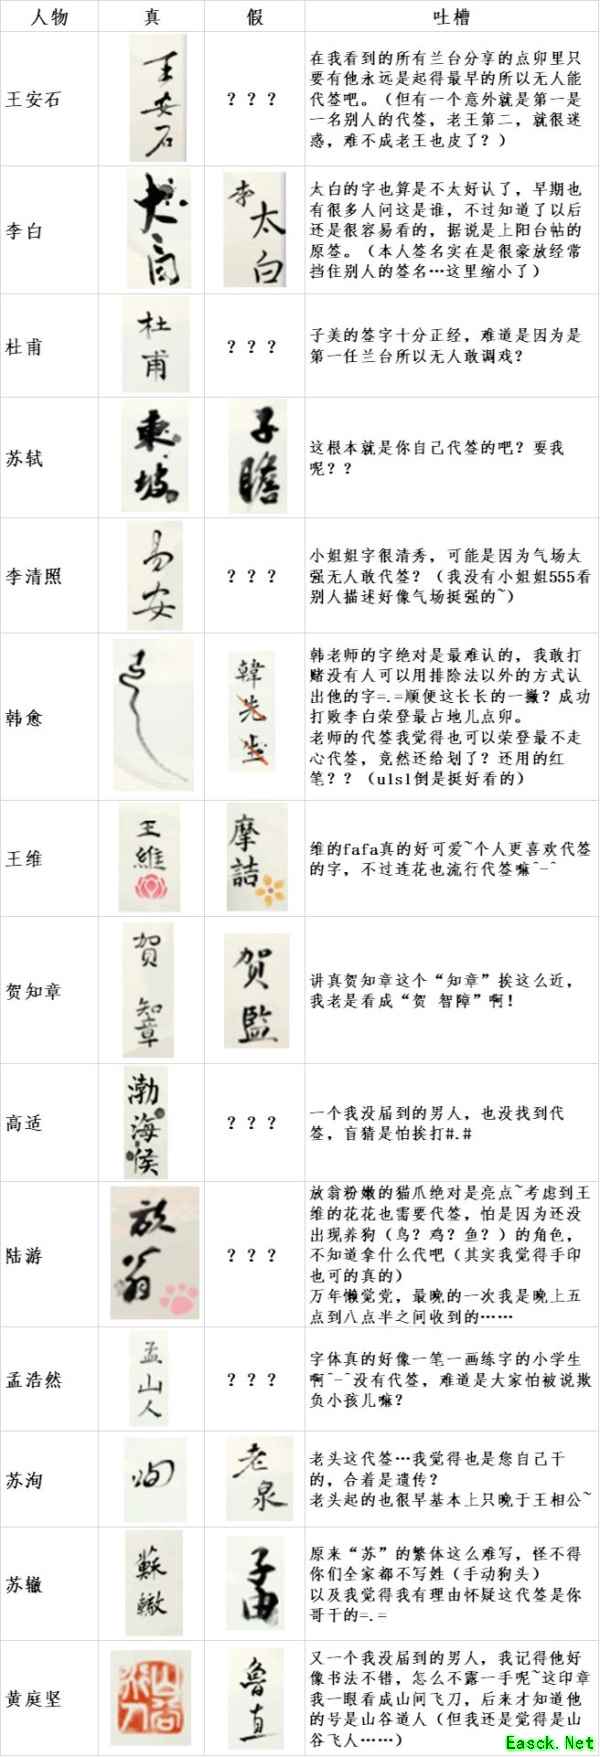 人物 真 假 吐槽
王安石 王安石 ？？？
在我看到的所有兰台分享的点卯里只
要有他永远是起得最早的所以无人能
代签吧。（但有一个意外就是第一是
一名别人的代签，老王第二，就很迷
惑，难不成老王也皮了？）
李白 太白 李太白
太白的字也算是不太好认了，早期也
有很多人问这是谁，不过知道了以后
还是很容易看的，据说是上阳台帖的
原签。（本人签名实在是很豪放经常
挡住别人的签名…这里缩小了）
杜甫 杜甫 ？？？
子美的签字十分正经，难道是因为是
第一任兰台所以无人敢调戏？
苏轼 東坡 子瞻
这根本就是你自己代签的吧？耍我
呢？？
李清照 易安 ？？？
小姐姐字很清秀，可能是因为气场太
强无人敢代签？（我没有小姐姐555看
别人描述好像气场挺强的~）
韩愈 韓先生
韩老师的字绝对是最难认的，我敢打
赌没有人可以用排除法以外的方式认
出他的字=.=顺便这长长的一撇？成功
打败李白荣登最占地儿点卯。
老师的代签我觉得也可以荣登最不走
心代签，竟然还给划了？还用的红
笔？？（ulsl倒是挺好看的）
王维 王維 摩詰
维的fafa真的好可爱~个人更喜欢代签
的字，不过连花也流行代签嘛^-^
贺知章 賀知章 賀監
讲真贺知章这个“知章”挨这么近，
我老是看成“贺 智障”啊！
高适 渤海侯 ？？？
一个我没届到的男人，也没找到代
签，盲猜是怕挨打#.#
陆游 放翁 ？？？
放翁粉嫩的猫爪绝对是亮点~考虑到王
维的花花也需要代签，怕是因为还没
出现养狗（鸟？鸡？鱼？）的角色，
不知道拿什么代吧（其实我觉得手印
也可的真的）
万年懒觉党，最晚的一次我是晚上五
点到八点半之间收到的……
孟浩然 孟山人 ？？？
字体真的好像一笔一画练字的小学生
啊^-^没有代签，难道是大家怕被说欺
负小孩儿嘛？
苏洵 洵 老泉
老头这代签…我觉得也是您自己干
的，合着是遗传？
老头起的也很早基本上只晚于王相公~
苏辙 蘇轍 子由
原来“苏”的繁体这么难写，怪不得
你们全家都不写姓（手动狗头）
以及我觉得我有理由怀疑这代签是你
哥干的=.=
黄庭坚 魯直
又一个我没届到的男人，我记得他好
像书法不错，怎么不露一手呢~这印章
我一眼看成山间飞刀，后来才知道他
的号是山谷道人（但我还是觉得是山
谷飞人……）
Easck.Net